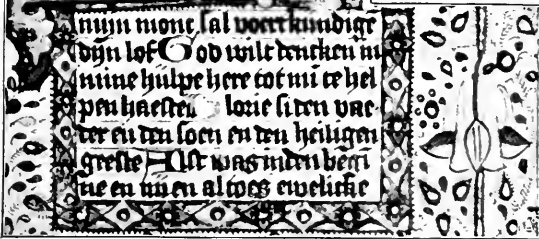 mijn mont sal voertkundige
dijn lof God wilt dencken in
mine hulpe here tot mi te hel
pen haeste lorie si den vae
der en den soen en den heiligen
geeste Alst was inden begi
ne en nu en altoes ewelicke